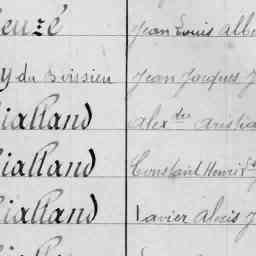 euzé Jean Louis Albe
y du Boissieu Jean Jacques J
ialland Alexdre Aristi
ialland Constant Henri
ialland Xavier Alexis J